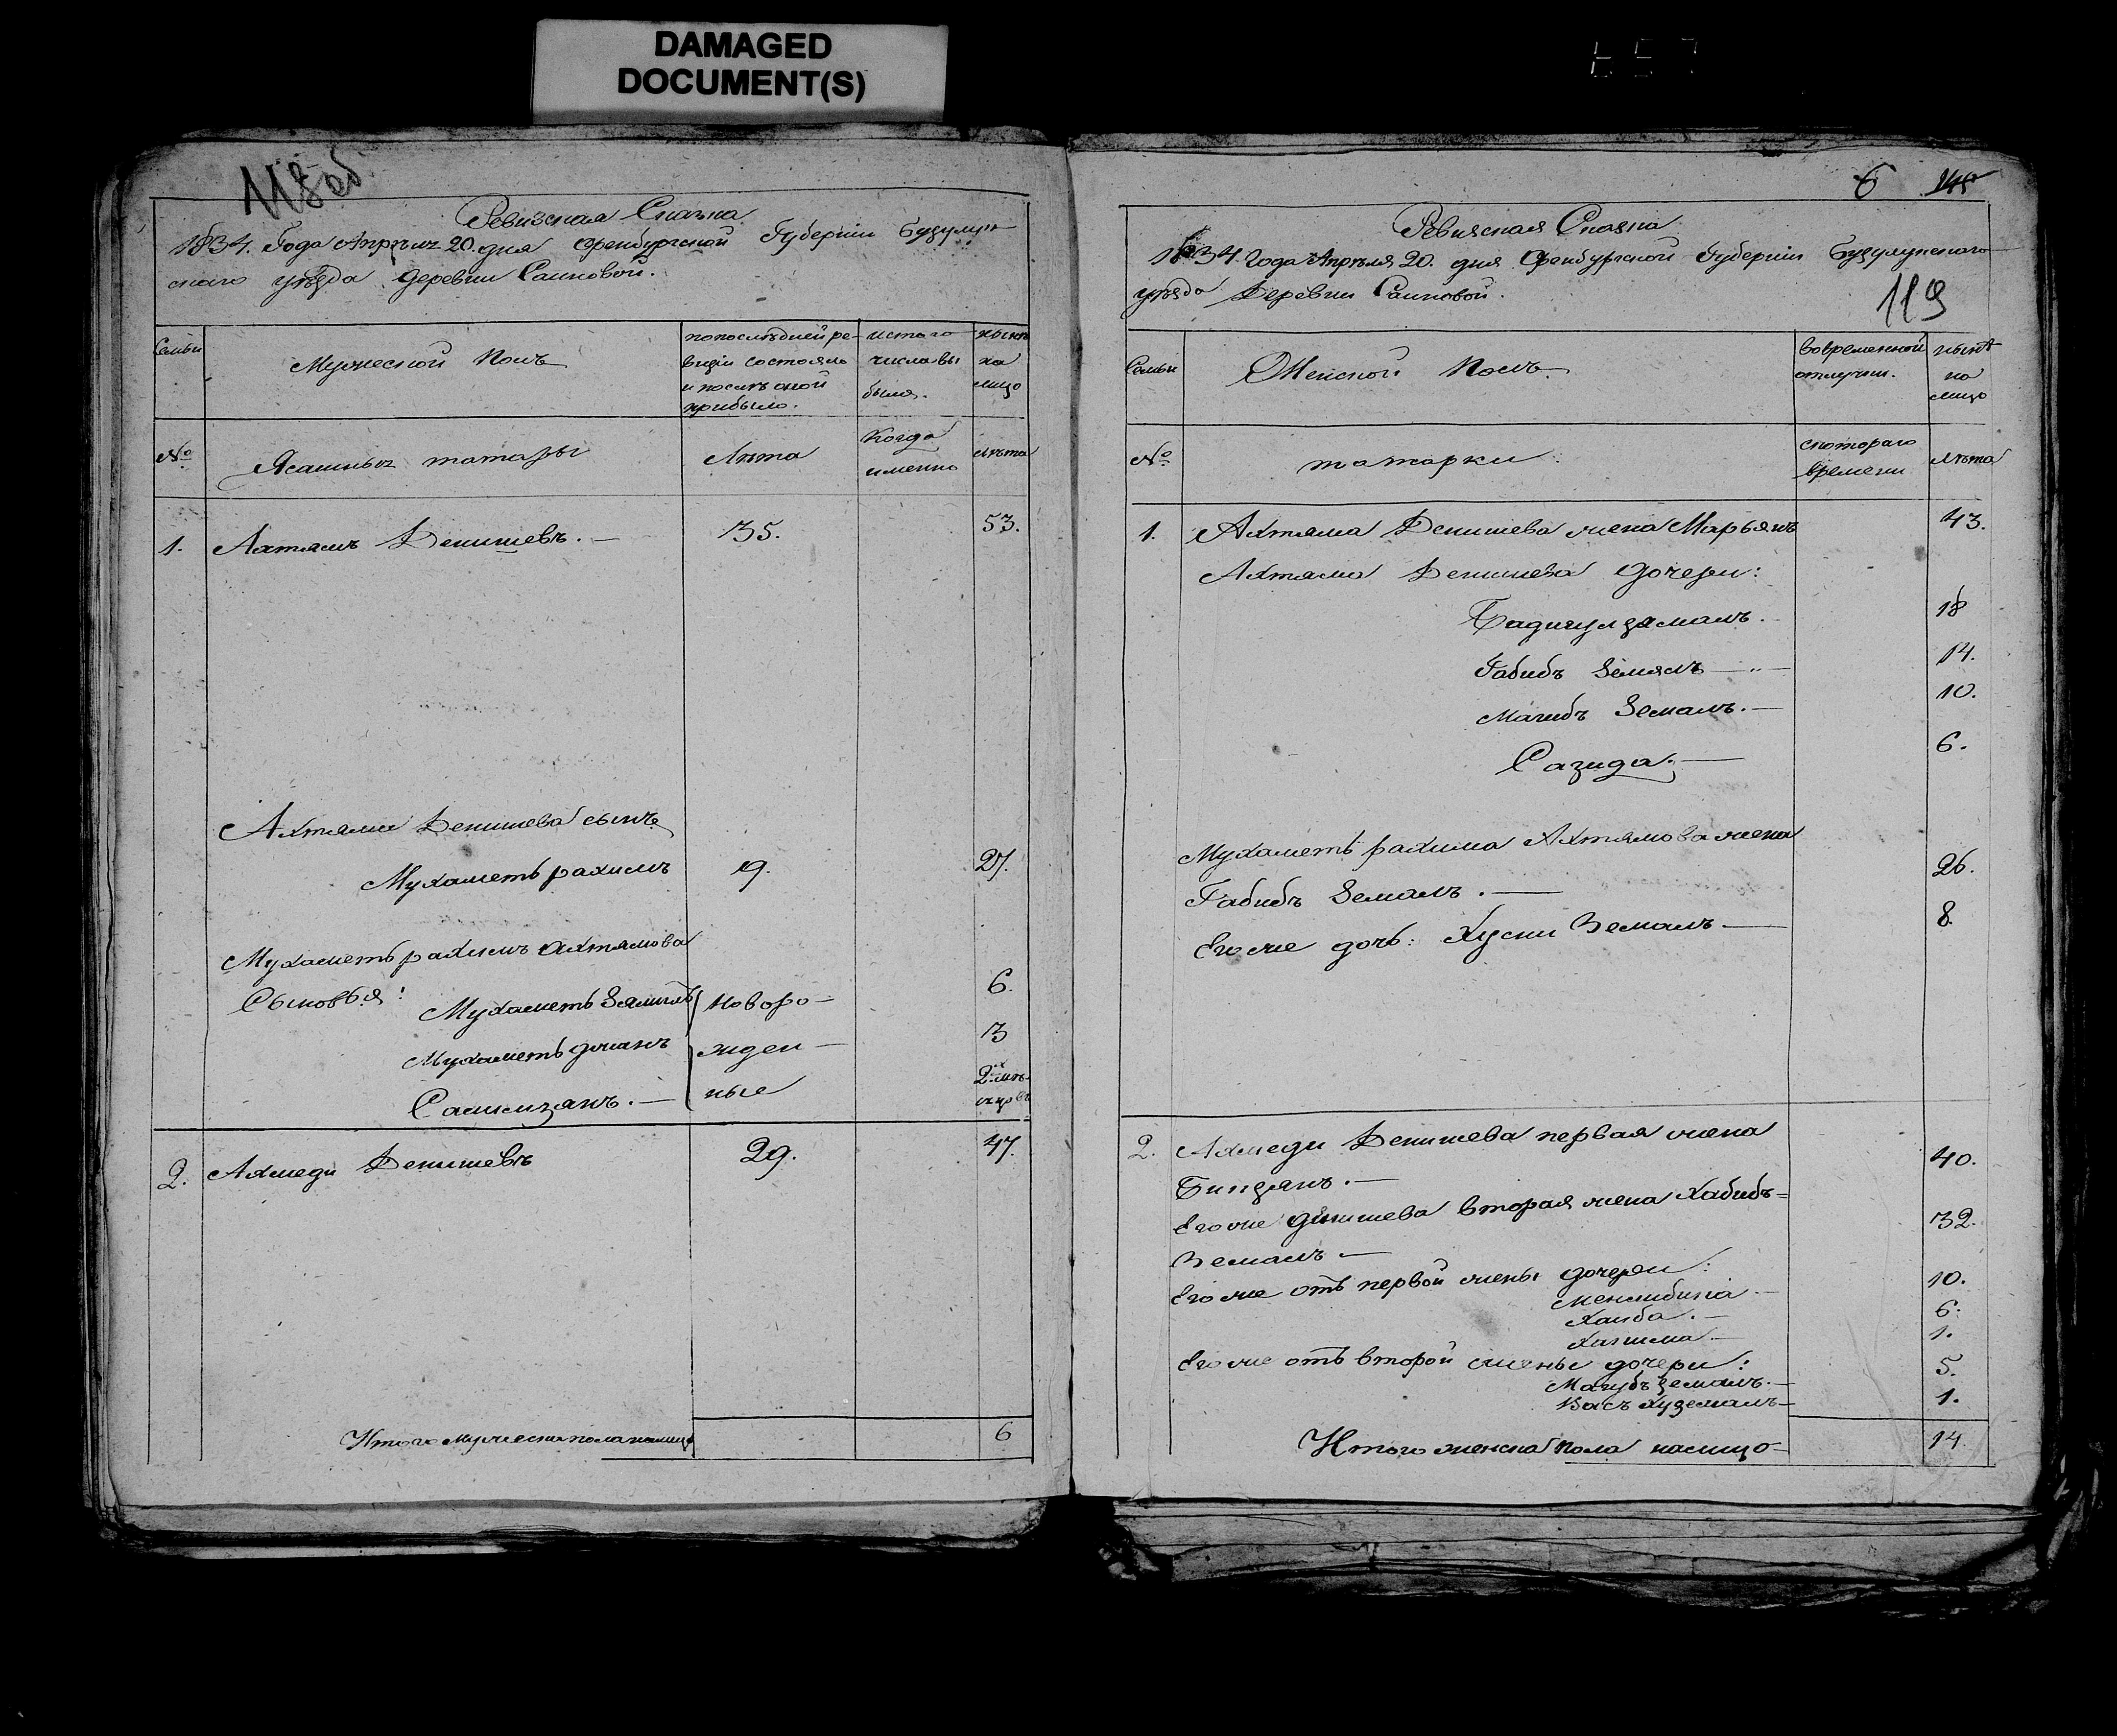 DAMAGED
DOCUMENT(S)
118об
Ревизская Сказка
1834. Года Апреля 20. дня Оренбургской Губернии Бузулук
скаго уѣзда деревни Саиновой.
Семьи
Мужеской Полъ
попослѣдней ре-
визіи состояло
и послѣ оной
прибыло.
изтого
числа вы
было.
нынѣ
на
лицо
№
Ясашныя татары
Лѣта
Когда
именно
лѣта
1. Ахтямъ Денишевъ. — 35. 53.
Ахтяма Денишева сынъ
Мухаметь рахимъ 9. 27.
Мухаметь рахимъ Ахтямова
Сыновья: Мухаметь Зямилъ новоро- 6.
Мухаметь джанъ жден- 3
Самизянъ. — ные 2х мѣ-
сяцовъ
2. Ахмеди Денишевъ 29. 47.
Итого мужеска пола налицо 6
6 118
Ревизская Сказка
1834. Года Апрѣля 20. дня Оренбургской Губерніи Бузулукскаго
уѣзда Деревни Саиновой.
119
Семьи
Женской Полъ.
вовременной
отлучки.
нынѣ
на
лицо
№
татарки
скотораго
времени
Лѣта
1. Ахтяма Денишева жена Марьянъ 43.
Ахтяма Денишева дочери:
Бадигулзямалъ. 18
Габибъ Земялъ — 14.
Магибъ Земалъ. — 10.
Сагида. — 6.
Мухаметь рахима Ахтямова жена
Габибъ Земалъ. — 26.
Его же дочь: Хусни Земалъ — 8.
2. Ахмеди Денишева первая жена
Бинзянъ. — 40.
Его же Денишева вторая жена Хабибъ= 32.
Земалъ —
Его же отъ первой жены дочери:
Менлибига — 10.
Хаиба. — 6.
Халима — 1.
Его же отъ второй жены дочери:
Магубъ земалъ. — 5.
Васъ Хуземалъ — 1.
Итого женска пола налицо 14